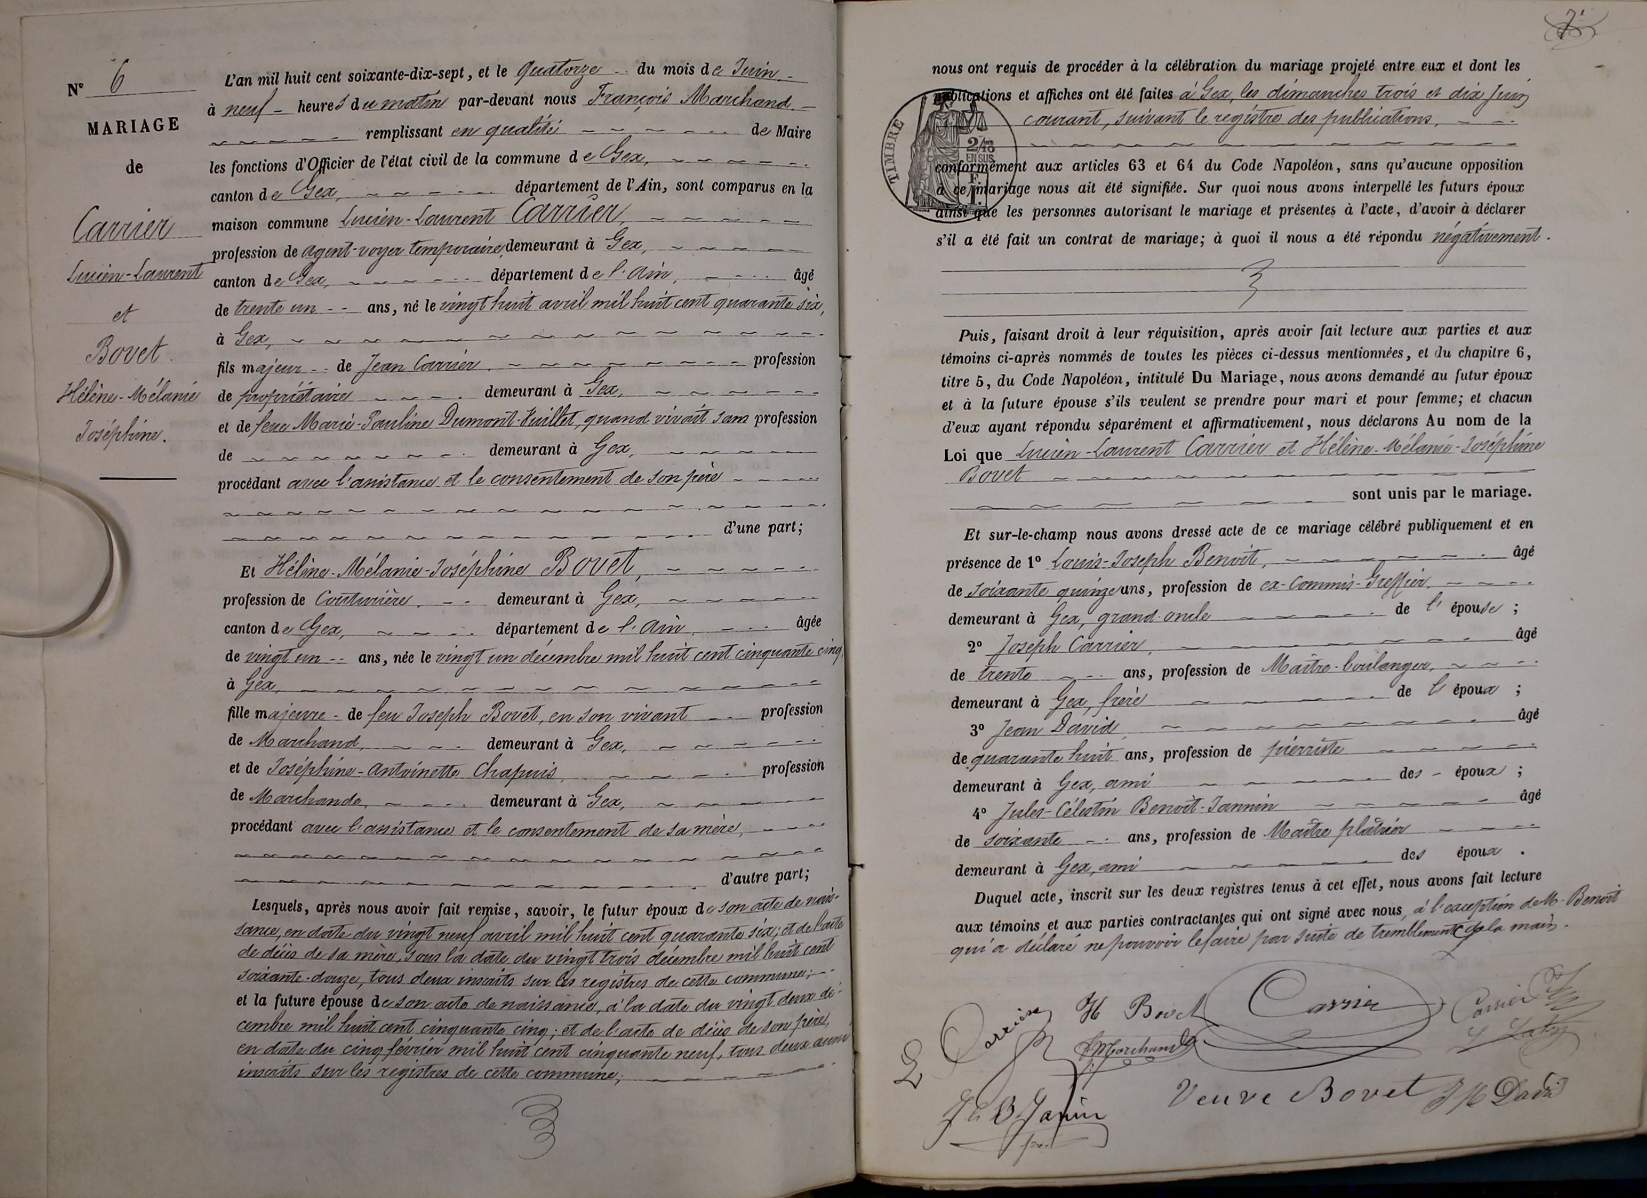 N° 6
MARIAGE
de
Carrier
Lucien-Laurent
et
Bovet
Hélène-Mélanie
Joséphine.
L'an mil huit cent soixante-dix-sept, et le Quatorze du mois de Juin
à neuf heures du matin par-devant nous François Marchand
remplissant en qualité de Maire
les fonctions d'Officier de l'état civil de la commune de Gex,
canton de Gex, département de l'Ain, sont comparus en la
maison commune Lucien-Laurent Carrier
profession de agent-voyer temporaire, demeurant à Gex,
canton de Gex, département de l'Ain, âgé
de trente un ans, né le vingt huit avril mil huit cent quarante six,
à Gex,
fils majeur de Jean Carrier profession
de propriétaire demeurant à Gex,
et de feue Marie-Pauline Dumont-Vuillet, quand vivait sans profession
de demeurant à Gex,
procédant avec l'assistance et le consentement de son père
d'une part;
Et Hélène-Mélanie-Joséphine Bovet,
profession de Couturière, demeurant à Gex,
canton de Gex, département de l'Ain, âgée
de vingt un ans, née le vingt un décembre mil huit cent cinquante cinq
à Gex,
fille majeure de feu Joseph Bovet, en son vivant profession
de Marchand, demeurant à Gex,
et de Joséphine-Antoinette Chapuis profession
de Marchande, demeurant à Gex,
procédant avec l'assistance et le consentement de sa mère,
d'autre part;
Lesquels, après nous avoir fait remise, savoir, le futur époux de son acte de nais-
sance, en date du vingt neuf avril mil huit cent quarante six; et de l'acte
de décès de sa mère, sous la date du vingt trois décembre mil huit cent
soixante-douze, tous deux inscrits sur les registres de cette commune;
et la future épouse de son acte de naissance, à la date du vingt deux dé-
cembre mil huit cent cinquante cinq; et de l'acte de décès de son père,
en date du cinq février mil huit cent cinquante neuf, tous deux aussi
inscrits sur les registres de cette commune;
7
nous ont requis de procéder à la célébration du mariage projeté entre eux et dont les
publications et affiches ont été faites à Gex, les dimanches trois et dix Juin
courant, suivant le registre des publications.
TIMBRE
2/10
EN SUS
F.
1.
conformément aux articles 63 et 64 du Code Napoléon, sans qu'aucune opposition
à ce mariage nous ait été signifiée. Sur quoi nous avons interpellé les futurs époux
ainsi que les personnes autorisant le mariage et présentes à l'acte, d'avoir à déclarer
s'il a été fait un contrat de mariage; à quoi il nous a été répondu négativement.
Puis, faisant droit à leur réquisition, après avoir fait lecture aux parties et aux
témoins ci-après nommés de toutes les pièces ci-dessus mentionnées, et du chapitre 6,
titre 5, du Code Napoléon, intitulé Du Mariage, nous avons demandé au futur époux
et à la future épouse s'ils veulent se prendre pour mari et pour femme; et chacun
d'eux ayant répondu séparément et affirmativement, nous déclarons Au nom de la
Loi que Lucien-Laurent Carrier et Hélène-Mélanie-Joséphine
Bovet
sont unis par le mariage.
Et sur-le-champ nous avons dressé acte de ce mariage célébré publiquement et en
présence de 1° Louis-Joseph Benoît, âgé
de soixante quinze ans, profession de ex-Commis-Greffier
demeurant à Gex, grand-oncle de l'épouse;
2° Joseph Carrier, âgé
de trente ans, profession de Maître-boulanger,
demeurant à Gex, frère de l'époux;
3° Jean David, âgé
de quarante huit ans, profession de pierriste
demeurant à Gex, ami des époux;
4° Jules-Célestin Benoît-Jannin âgé
de soixante ans, profession de Maître plâtrier
demeurant à Gex, ami des époux.
Duquel acte, inscrit sur les deux registres tenus à cet effet, nous avons fait lecture
aux témoins et aux parties contractantes qui ont signé avec nous, à l'exception de M. Benoît
qui a déclaré ne pouvoir le faire par suite de tremblement de la main.
Carrier
H Bovet
Carrier
Carrier
F. Marchand
Janin
Veuve Bovet
David